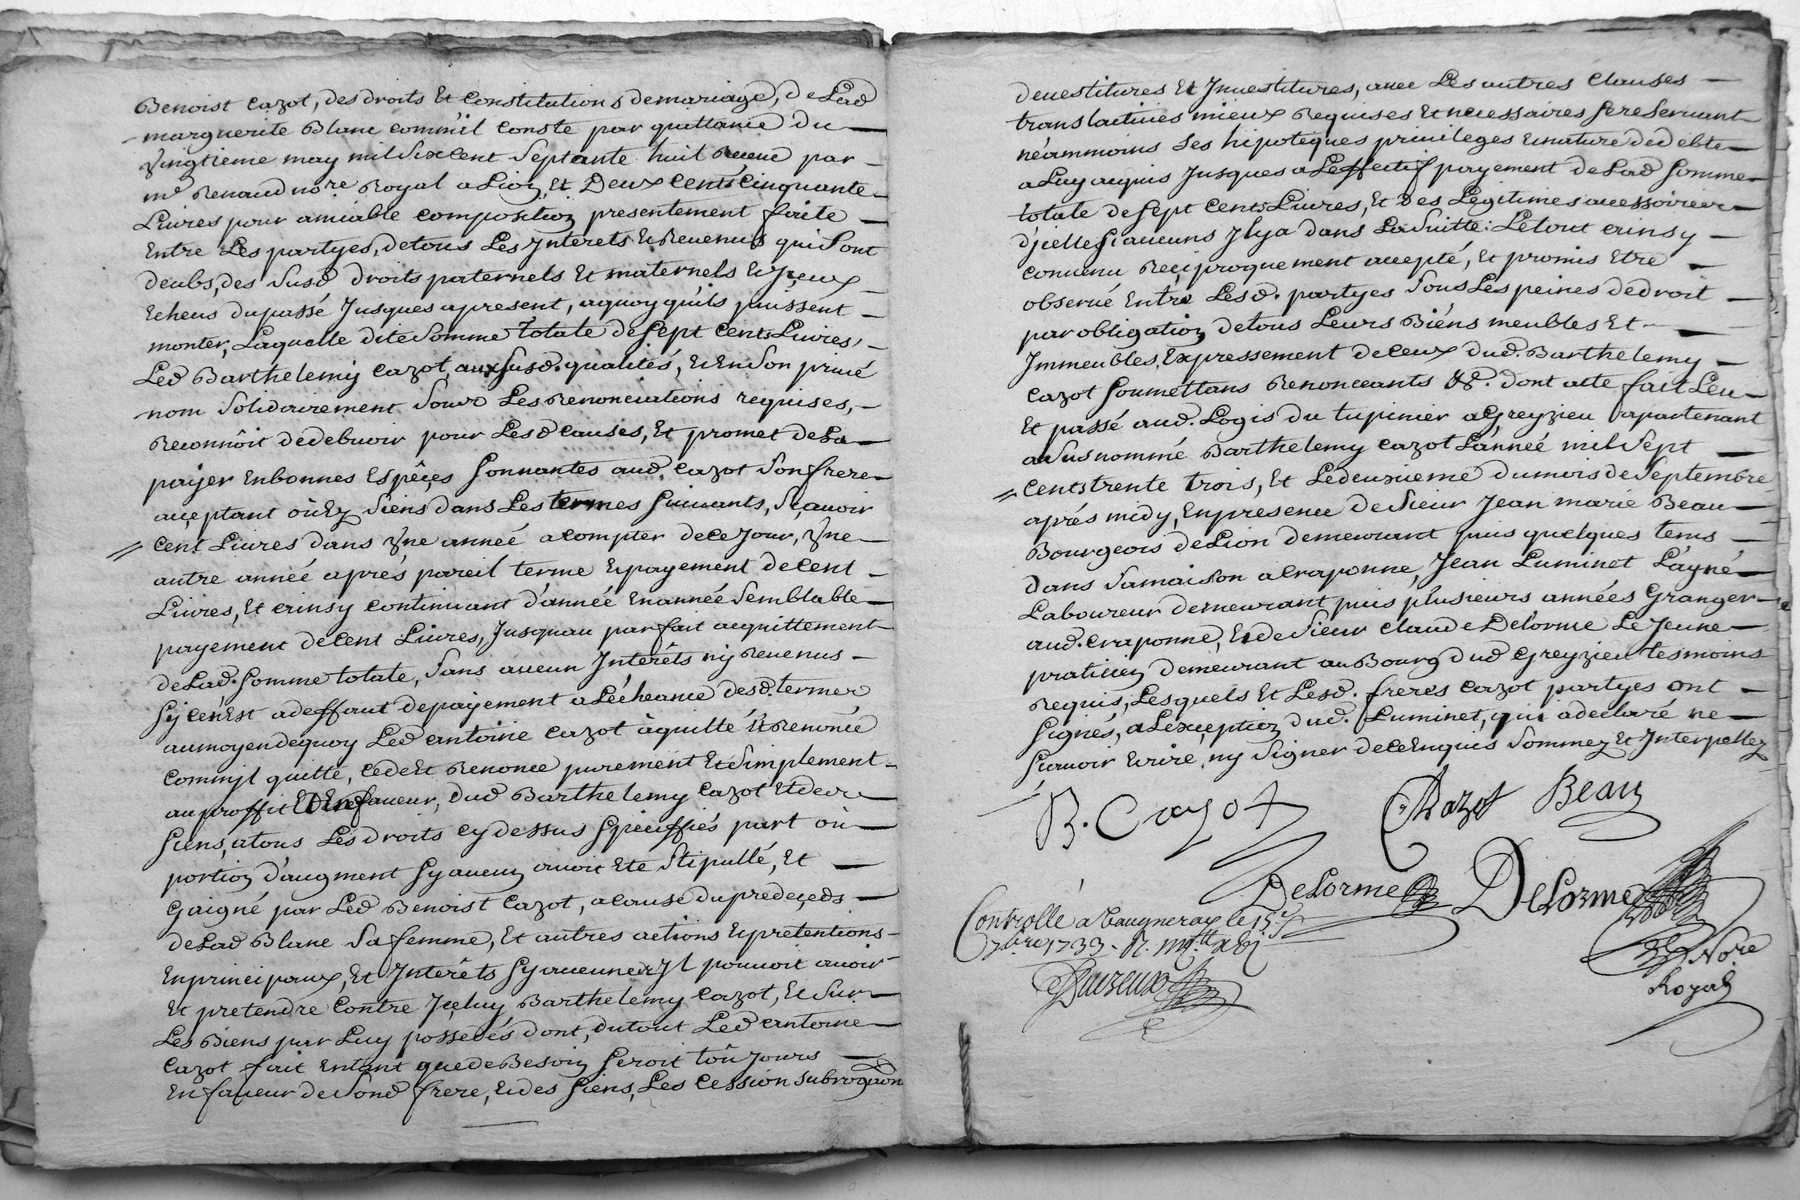 Benoist Cazot, des droits Et Constitutions de mariage, de Lad
marguerite Blanc comm'il Conste par quittance du
Vingtieme may mil Six Cent Septante huit Receue par
me Renaud nore Royal a Lion Et Deux Cents Cinquante
Livres pour amiable composition presentement faite
Entre Les partyes, de tous Les Interets Et Revenus qui Sont
deubs, des Susd droits paternels Et maternels Et Iceux
Echeus du passé Jusques apresent, aquoy qu'ils puissent
monter, Laquelle dite Somme totale de Sept Cents Livres,
Led Barthelemy Cazot, aux Susd. qualités, Et En Son privé
nom Solidairement Sous Les Renonciations requises,
Reconnoit de debvoir pour Lesd Causes, Et promet de La
payer En bonnes Espêces Sonnantes aud. Cazot Son frere
acceptant ou Ez Siens dans Les termes Suivants, Sçavoir
Cent Livres dans Vne année a compter de ce Jour, Vne
autre année aprés pareil terme Et payement de Cent
Livres, Et ainsy continuant d'année En année Semblable
payement de Cent Livres, Jusquau parfait acquittement
de Lad. Somme totale, Sans aucun Interêts ny Revenus
Sy ce n'Est a deffaut de payement a L'écheance desd. termes
au moyen de quoy Led antoine Cazot à quitté Et Renoncé
Comm'jl quitte, Cede Et Renonce purement Et Simplement
au proffit Et En faveur, dud Barthelemy Cazot Et des
Siens, a tous Les droits Cy dessus Speciffiés part ou
portion d'augment Sy aucun avoit Eté Stipullé, Et
Gaigné par Led Benoist Cazot, a cause du predeçeds
de Lad Blanc Sa femme, Et autres actions Et pretentions
En principaux, Et Interêts Sy aucunes Jl pouvoit avoir
Et pretendre Contre Içeluy Barthelemy Cazot, Et Sur
Les Biens par Luy possedés dont, du tout Led antoine
Cazot fait Entant que de Besoin Seroit toûjours
En faveur de Sond frere, Et des Siens, Les Cession subrogaon
devestitures Et Investitures, avec Les autres Clauses
translatives mieux Requises Et necessaires Se reservant
néammoins Ses hipoteques privileges Et nature de debte
a Luy acquis Jusques a L'effectif payement de Lad Somme
totale de Sept Cents Livres, Et des Legitimes accessoires
d'jcelle Si aucuns Jl y a dans La Suitte. Le tout ainsy
convenu Reçiproquement accepté, Et promis Etre
observé Entre Lesd. partyes Sous Les peines de droit
par obligation de tous Leurs Biéns meubles Et
Immeubles, Expressement de Ceux dud. Barthelemy
Cazot Soumettans Renonceants &c. dont acte fait Leu
Et passé aud. Logis du tupinier a Greyzieu apartenant
au Susnommé Barthelemy Cazot L'année mil Sept
Cents trente trois, Et Le deuxieme du mois de Septembre
aprés midy, En presence de Sieur Jean marie Beau
Bourgeois de Lion demeurant puis quelques tems
Dans Sa maison a Craponne, Jean Luminet L'ayné
Laboureur demeurant puis plusieurs années Granger
aud. Craponne, Et de Sieur Claude Delorme Le Jeune
praticien demeurant au Bourg dud Greyzieu tesmoins
Requis, Lesquels Et Lesd. freres Cazot partyes ont
Signés, a L'exception dud. Luminet, qui a declaré ne
Scavoir Ecrire, ny Signer de ce Enquis Sommez Et Interpellez
B. Cazot
A Cazot
Beau
Delorme
Delorme
Nore
Royal
Controllé a Vaugneray le 15e
7bre 1733.